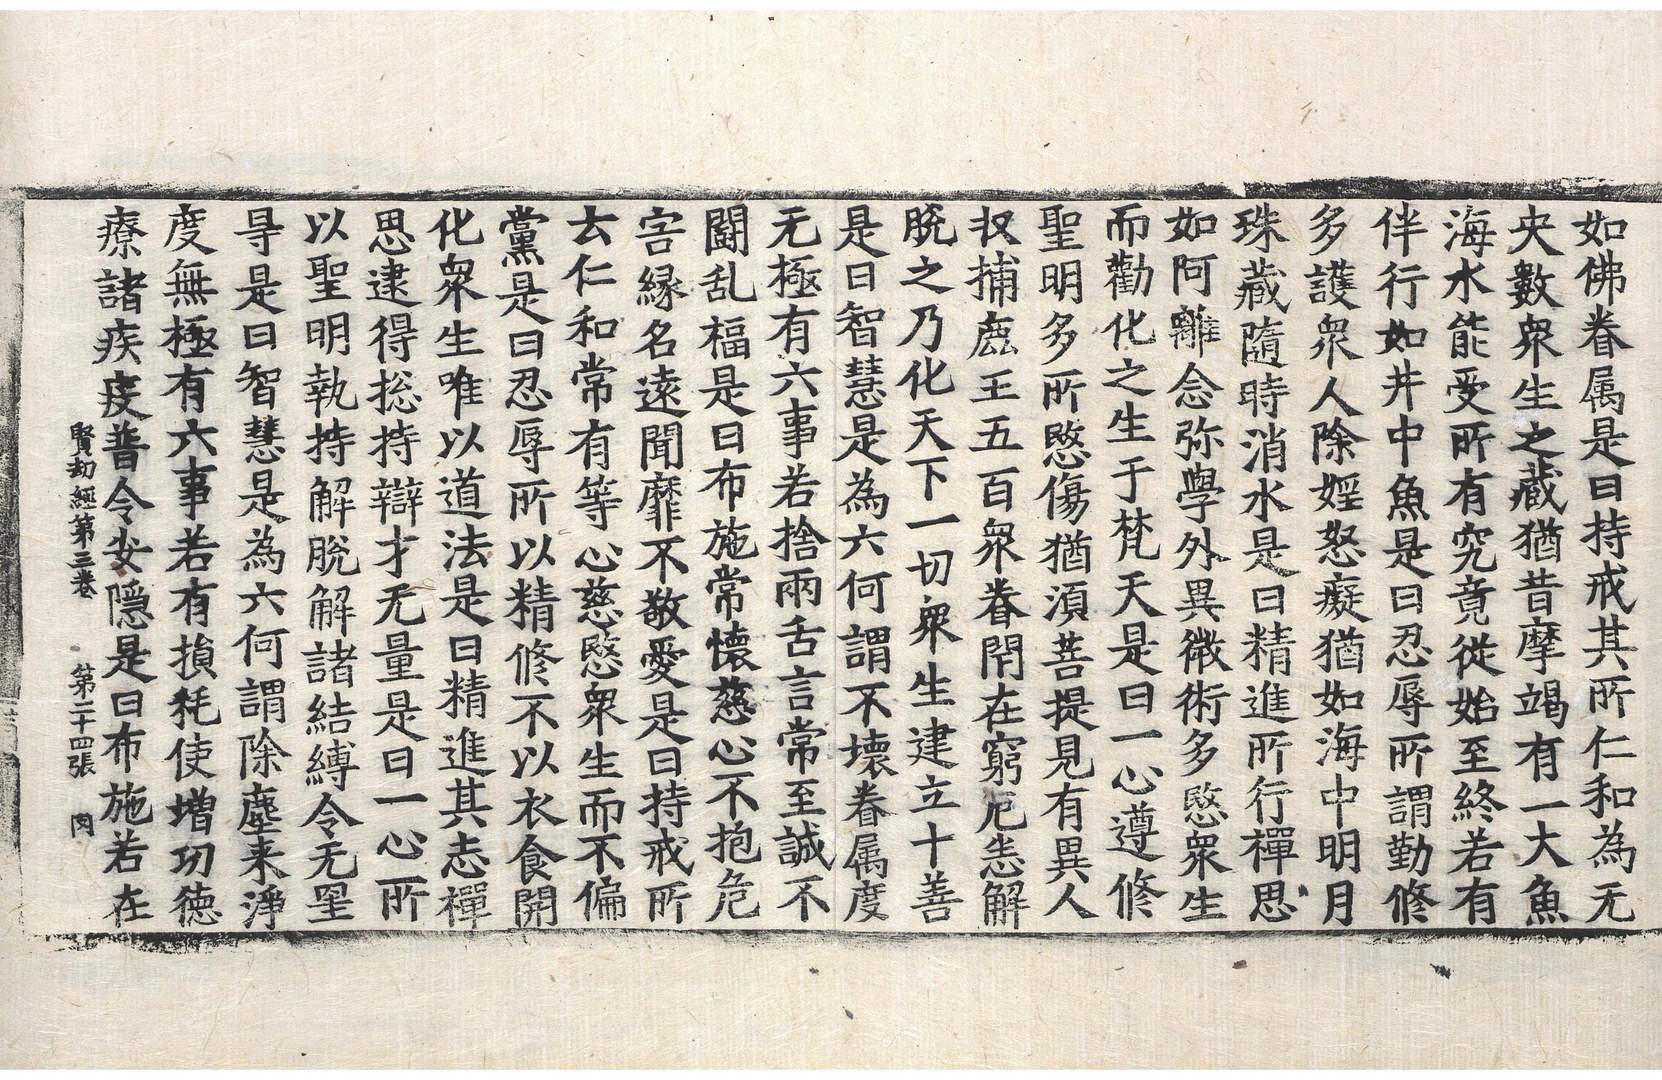 如佛眷属是曰持戒其所仁和為无
央數衆生之藏猶昔摩竭有一大魚
海水能受所有究竟從始至終若有
伴行如井中魚是曰忍辱所謂勤修
多護衆人除婬怒癡猶如海中明月
珠藏隨時消水是曰精進所行禪思
如阿離念弥學外異徴術多愍衆生
而勸化之生于梵天是曰一心遵修
聖明多所愍傷猶湏菩提見有異人
収捕鹿王五百衆眷閇在窮厄恚解
脫之乃化天下一切衆生建立十善
是曰智慧是為六何謂不壊眷属度
无極有六事若捨兩舌言常至誠不
鬪乱福是曰布施常懷慈心不抱危
害縁名遠聞靡不敬愛是曰持戒所
去仁和常有等心慈愍衆生而不偏
黨是曰忍辱所以精修不以衣食開
化衆生唯以道法是曰精進其志禪
思逮得捴持辯才无量是曰一心所
以聖明執持解脫解諸結縛令无罣
㝵是曰智慧是為六何謂除塵来淨
度無極有六事若有損耗使增功德
療諸疾疫普令安隱是曰布施若在
賢劫經第三卷 第二十四張